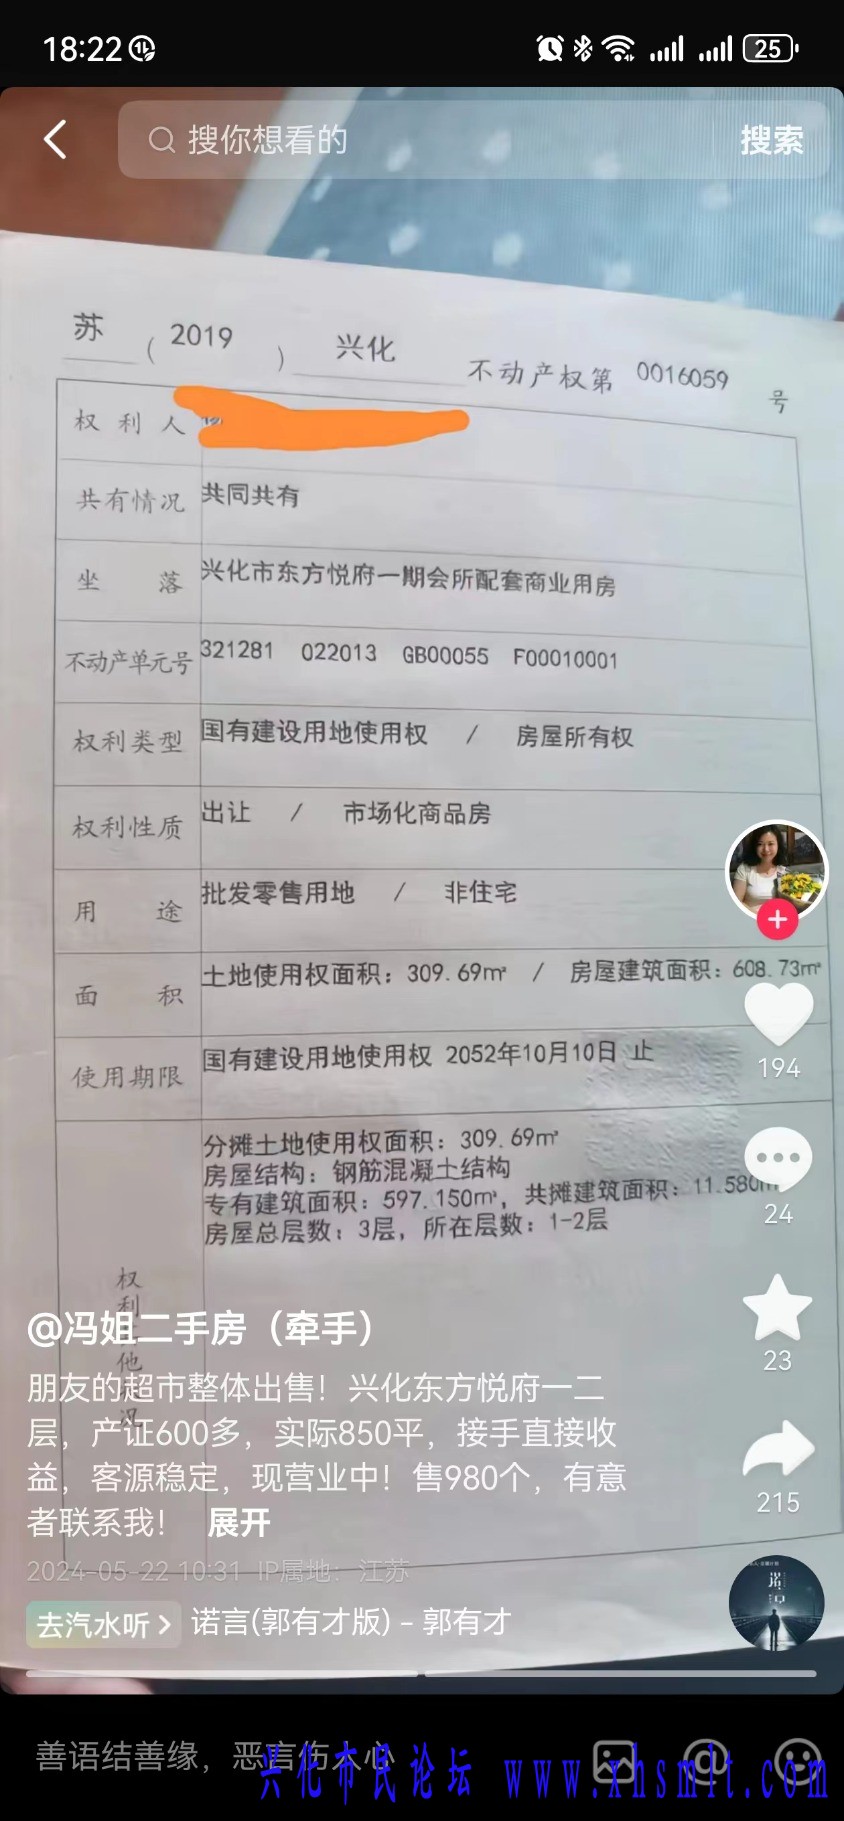 18:22
25
搜你想看的 搜索
苏 ( 2019 ) 兴化 不动产权第 0016059 号
权利人
共有情况 共同共有
坐落 兴化市东方悦府一期会所配套商业用房
不动产单元号 321281 022013 GB00055 F00010001
权利类型 国有建设用地使用权 / 房屋所有权
权利性质 出让 / 市场化商品房
用途 批发零售用地 / 非住宅
面积 土地使用权面积：309.69㎡ / 房屋建筑面积：608.73㎡
使用期限 国有建设用地使用权 2052年10月10日 止
分摊土地使用权面积：309.69㎡
房屋结构：钢筋混凝土结构
专有建筑面积：597.150㎡，共摊建筑面积：11.580㎡
房屋总层数：3层，所在层数：1-2层
权利其他状况
194
24
23
215
@冯姐二手房（牵手）
朋友的超市整体出售！兴化东方悦府一二
层，产证600多，实际850平，接手直接收
益，客源稳定，现营业中！售980个，有意
者联系我！ 展开
2024-05-22 10:31 IP属地：江苏
去汽水听 > 诺言(郭有才版) - 郭有才
善语结善缘，恶言伤人心
兴化市民论坛 www.xhsmlt.com